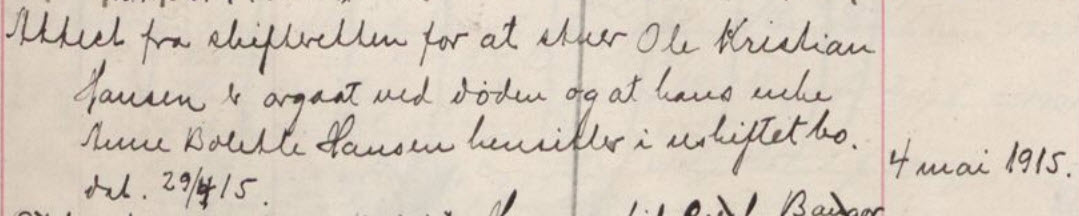 Attest fra skifteretten for at stuer Ole Kristian
Hansen er avgaat ved døden og at hans enke
Anne Bolette Hansen hensitter i uskiftet bo.
dat. 29/4 15.
4 mai 1915.